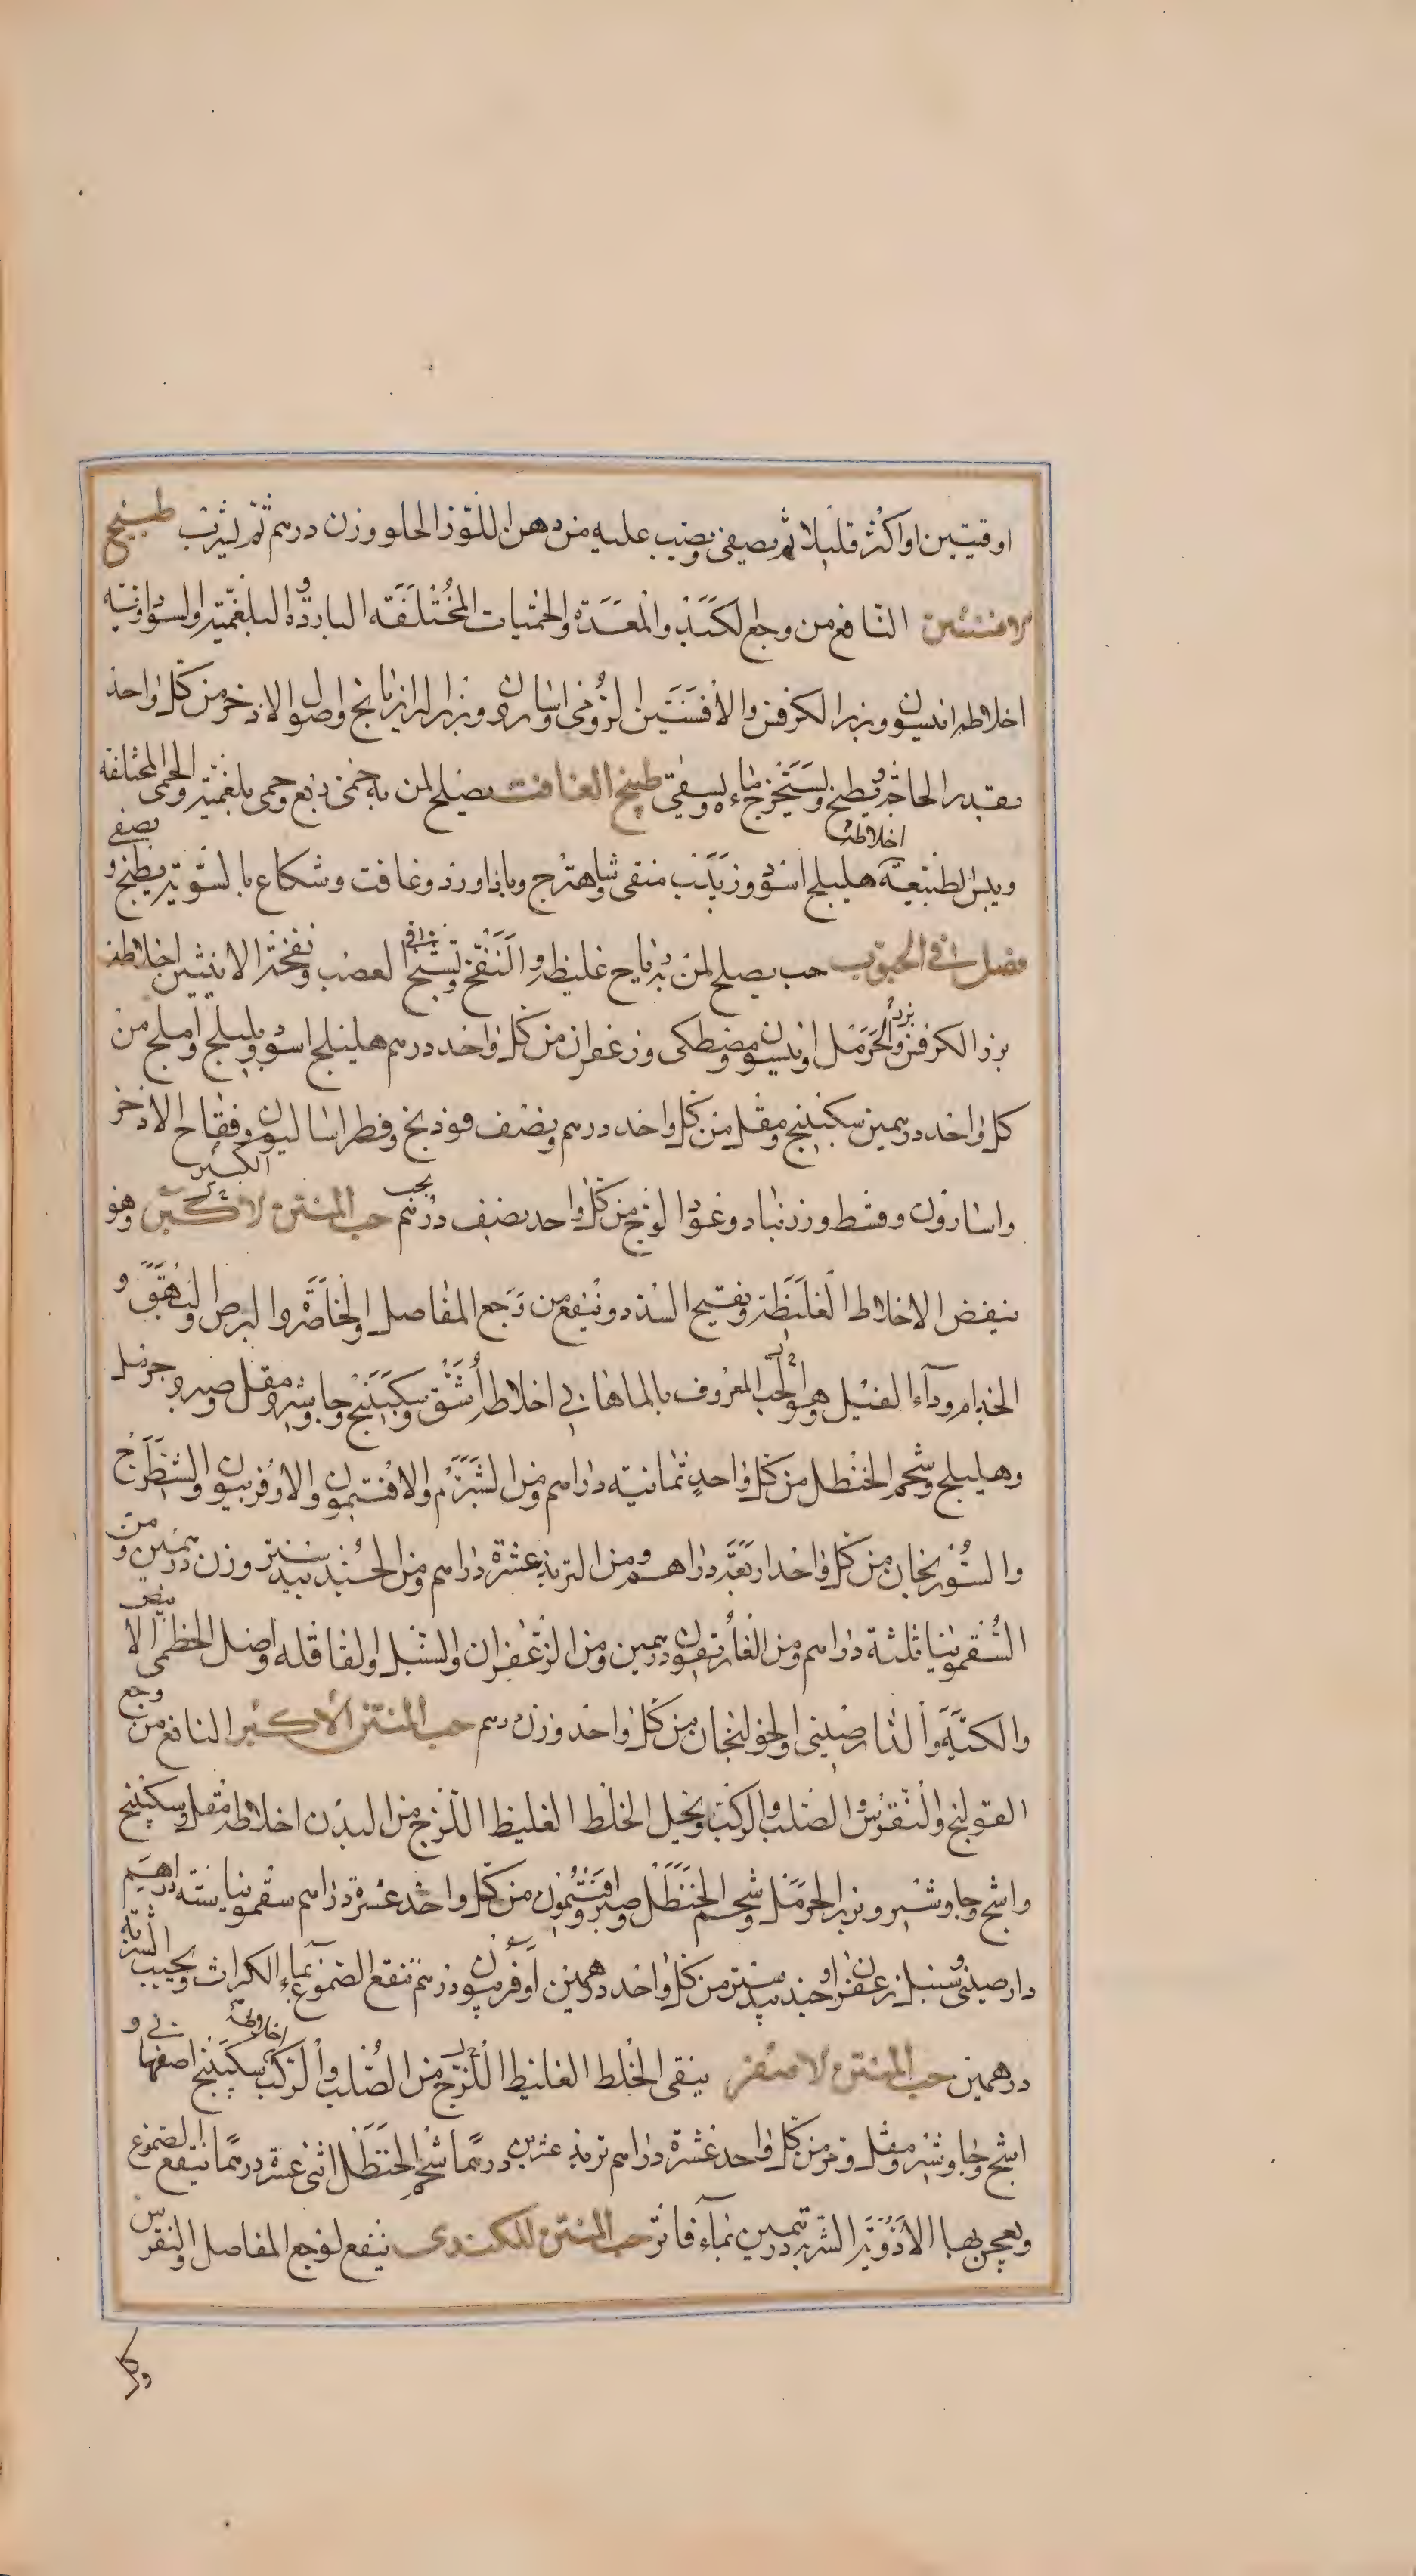 اوقيتين او اكثر قليلا ثم يصفى ويصب عليه من دهن اللوز الحلو وزن درهم ثم يشرب طبيخ
الافسنتين النافع من وجع الكبد والمعدة والحميات المختلفة الباردة البلغمية والسوداوية
اخلاطه انيسون وبزر الكرفس والافسنتين الرومى واسارون وبزر الرازيانج واصول الاذخر من كل واحد
بقدر الحاجة يطبخ ويستخرج ماءه ويسقى طبيخ الغافت يصلح لمن به حمى ربع وحمى بلغمية والحمى المختلفة
ويبس الطبيعة اخلاطه هليلج اسود وزبيب منقى وشاهترج وباذاورد وغافت وشكاع بالسوية يطبخ و يصفى
فصل فى الحبوب حب يصلح لمن به رياح غليظة والنفخ وتشنج فى العصب ونفخة الانثيين اخلاطه
بزر الكرفس وبزر الحرمل وانيسون ومصطكى وزعفران من كل واحد درهم هليلج اسود وبليلج واملج من
كل واحد درهمين سكبينج ومقل من كل واحد درهم ونصف فوذنج وفطراساليون وفقاح الاذخر
واسارون وقسط وزرنباد وعود الوج من كل واحد نصف درهم يحبب حب المنتن الاكبر الكبير وهو
ينفض الاخلاط الغليظة ويفتح السدد وينفع من وجع المفاصل والخاصرة والبرص والبهق و
الجذام وداء الفيل وهو الحب المعروف بالماهانى اخلاطه اشق وسكبينج وجاوشير ومقل وصبر وحرمل
وهليلج وشحم الحنظل من كل واحد ثمانية دراهم ومن الشبرم والافتيمون والاوفربيون والشيطرج
والسورنجان من كل واحد اربعة دراهم ومن التربذ عشرة دراهم ومن الجندبيدستر وزن درهمين ومن
السقمونيا ثلثة دراهم ومن الغاريقون درهمين ومن الزعفران والسنبل والقاقله واصل الخطمى الابيض
والكبية والدارصينى والخولنجان من كل واحد وزن درهم حب المنتن الاكبر النافع من وجع
القولنج والنقرس والصلب والركب ويحيل الخلط الغليظ اللزج من البدن اخلاطه مقل وسكبينج
واشج وجاوشير وبزر الحرمل وشحم الحنظل وصبر وافتيمون من كل واحد عشرة دراهم سقمونيا ستة دراهم
دارصينى وسنبل وزعفران وجندبيدستر من كل واحد درهمين اوفربيون درهم تنقع الصموغ بماء الكراث ويحبب الشربة
درهمين حب المنتن الاصغر ينقى الخلط الغليظ اللزج من الصلب والركب اخلاطه سكبينج اصفهانى و
اشج وجاوشير ومقل وحرمل من كل واحد عشرة دراهم تربذ عشرين درهما شحم الحنظل اثنى عشرة درهما تنقع الصموغ
ويعجن بها الادوية الشربة درهمين بماء فاتر حب المنتن للكندى ينفع لوجع المفاصل والنقرس